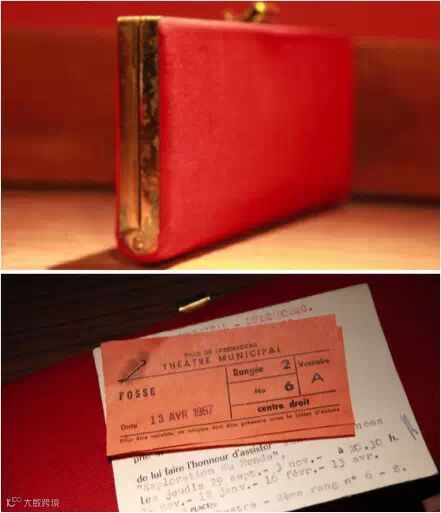 - LUXEMBOURG.
VILLE DE LUXEMBOURG
THÉATRE MUNICIPAL
FOSSE
Rangée 2
Vestiaire
No 6
A
centre droit
Date 13 AVR 1967
Pour être valable, ce coupon doit être présenté avec le billet d'entrée
de lui faire l'honneur d'assister
"Exploration du Monde", à 20.30 h.
les jeudis 29 sept.- 3 nov.-
nov.- 12 janv.- 16 févr.- 13 avr.
PLACES
2ème rang n° 6 - 8.
大数跨境